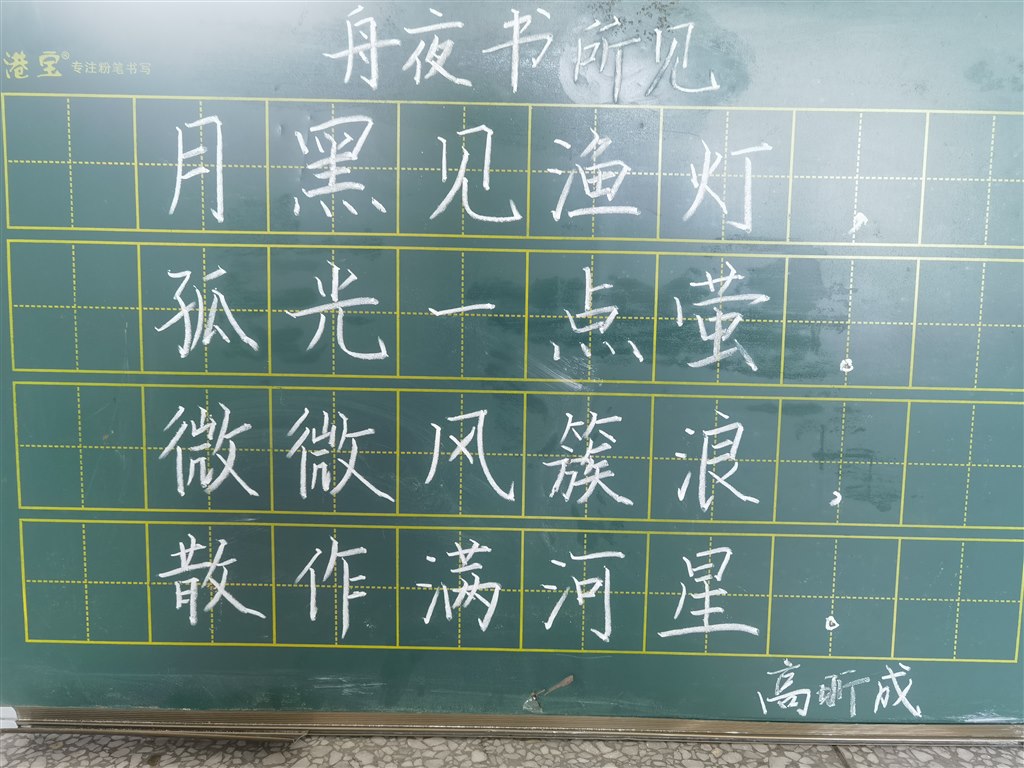 舟夜书所见
港宝® 专注粉笔书写
月黑见渔灯，
孤光一点萤。
微微风簇浪，
散作满河星。
高昕成